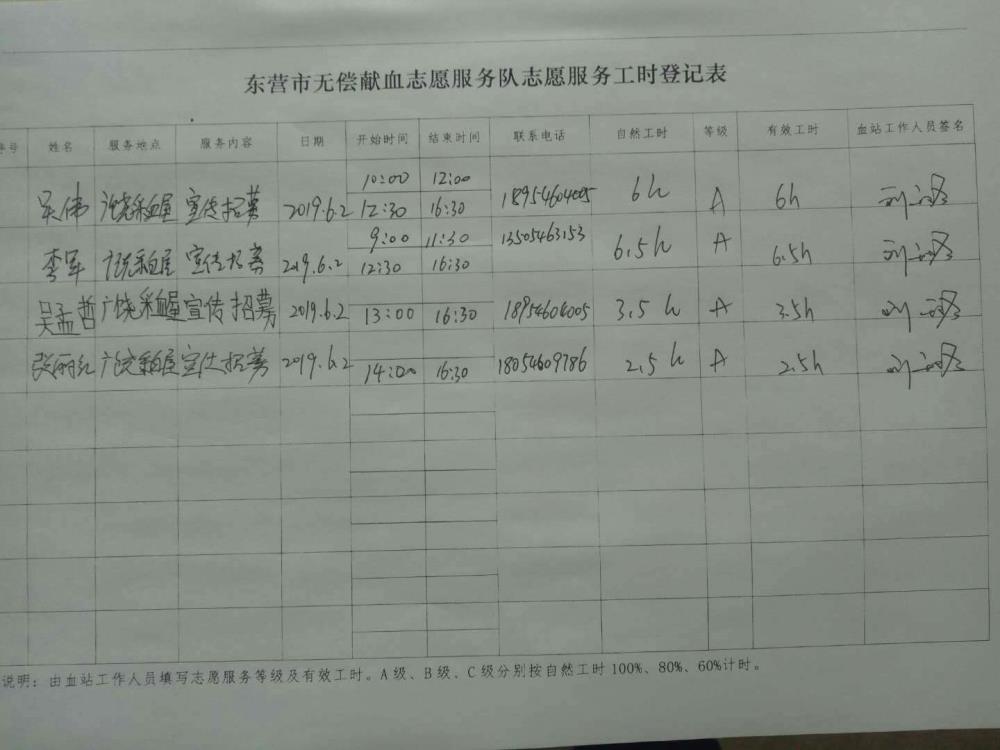 东营市无偿献血志愿服务队志愿服务工时登记表
序号 姓名 服务地点 服务内容 日期 开始时间 结束时间 联系电话 自然工时 等级 有效工时 血站工作人员签名
10:00 12:00
吴伟 广饶采血屋 宣传招募 2019.6.2 12:30 16:30 18954604005 6h A 6h
9:00 11:30 13505463153
李军 广饶采血屋 宣传招募 2019.6.2 12:30 16:30 6.5h A 6.5h
吴孟哲 广饶采血屋 宣传招募 2019.6.2 13:00 16:30 18954604005 3.5h A 3.5h
张丽红 广饶采血屋 宣传招募 2019.6.2 14:00 16:30 18054609786 2.5h A 2.5h
说明：由血站工作人员填写志愿服务等级及有效工时。A级、B级、C级分别按自然工时100%、80%、60%计时。